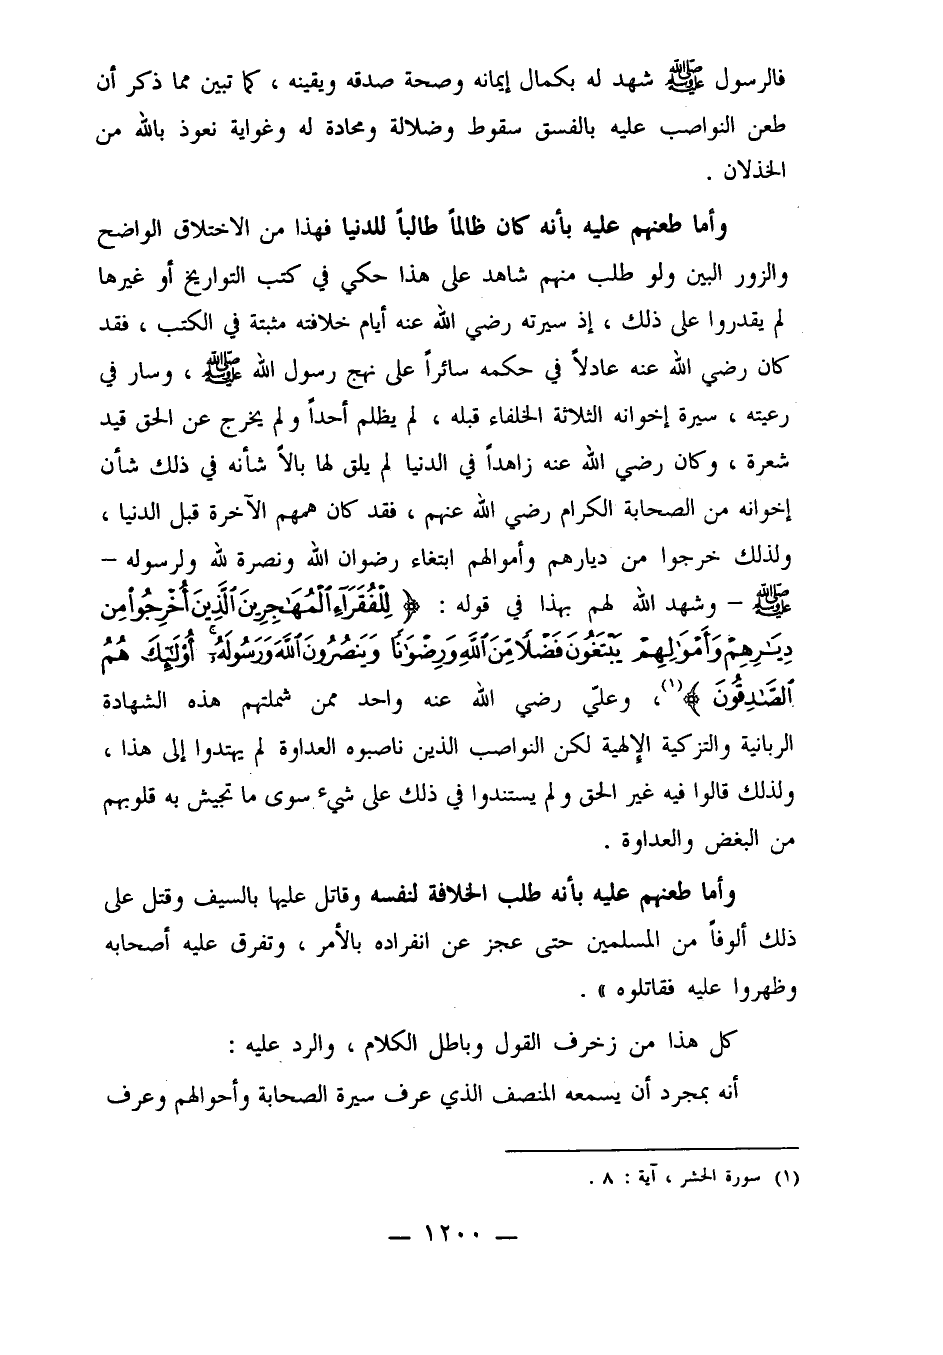 فالرسول ﷺ شهد له بكمال إيمانه وصحة صدقه ويقينه ، كما تبين مما ذكر أن
طعن النواصب عليه بالفسق سقوط وضلالة ومحادة له وغواية نعوذ بالله من
الخذلان .
وأما طعنهم عليه بأنه كان ظالماً طالباً للدنيا فهذا من الاختلاق الواضح
والزور البين ولو طلب منهم شاهد على هذا حكي في كتب التواريخ أو غيرها
لم يقدروا على ذلك ، إذ سيرته رضي الله عنه أيام خلافته مثبتة في الكتب ، فقد
كان رضي الله عنه عادلاً في حكمه سائراً على نهج رسول الله ﷺ ، وسار في
رعيته ، سيرة إخوانه الثلاثة الخلفاء قبله ، لم يظلم أحداً ولم يخرج عن الحق قيد
شعرة ، وكان رضي الله عنه زاهداً في الدنيا لم يلق لها بالاً شأنه في ذلك شأن
إخوانه من الصحابة الكرام رضي الله عنهم ، فقد كان همهم الآخرة قبل الدنيا ،
ولذلك خرجوا من ديارهم وأموالهم ابتغاء رضوان الله ونصرة لله ولرسوله –
ﷺ – وشهد الله لهم بهذا في قوله : ﴿ لِلْفُقَرَآءِ ٱلْمُهَٰجِرِينَ ٱلَّذِينَ أُخْرِجُوا۟ مِن
دِيَٰرِهِمْ وَأَمْوَٰلِهِمْ يَبْتَغُونَ فَضْلًا مِّنَ ٱللَّهِ وَرِضْوَٰنًا وَيَنصُرُونَ ٱللَّهَ وَرَسُولَهُۥٓ ۚ أُو۟لَٰٓئِكَ هُمُ
ٱلصَّٰدِقُونَ ﴾(١)، وعليّ رضي الله عنه واحد ممن شملتهم هذه الشهادة
الربانية والتزكية الإلهية لكن النواصب الذين ناصبوه العداوة لم يهتدوا إلى هذا ،
ولذلك قالوا فيه غير الحق ولم يستندوا في ذلك على شيء سوى ما تجيش به قلوبهم
من البغض والعداوة .
وأما طعنهم عليه بأنه طلب الخلافة لنفسه وقاتل عليها بالسيف وقتل على
ذلك ألوفاً من المسلمين حتى عجز عن انفراده بالأمر ، وتفرق عليه أصحابه
وظهروا عليه فقاتلوه » .
كل هذا من زخرف القول وباطل الكلام ، والرد عليه :
أنه بمجرد أن يسمعه المنصف الذي عرف سيرة الصحابة وأحوالهم وعرف
(١) سورة الحشر ، آية : ٨ .
— ١٢٠٠ —